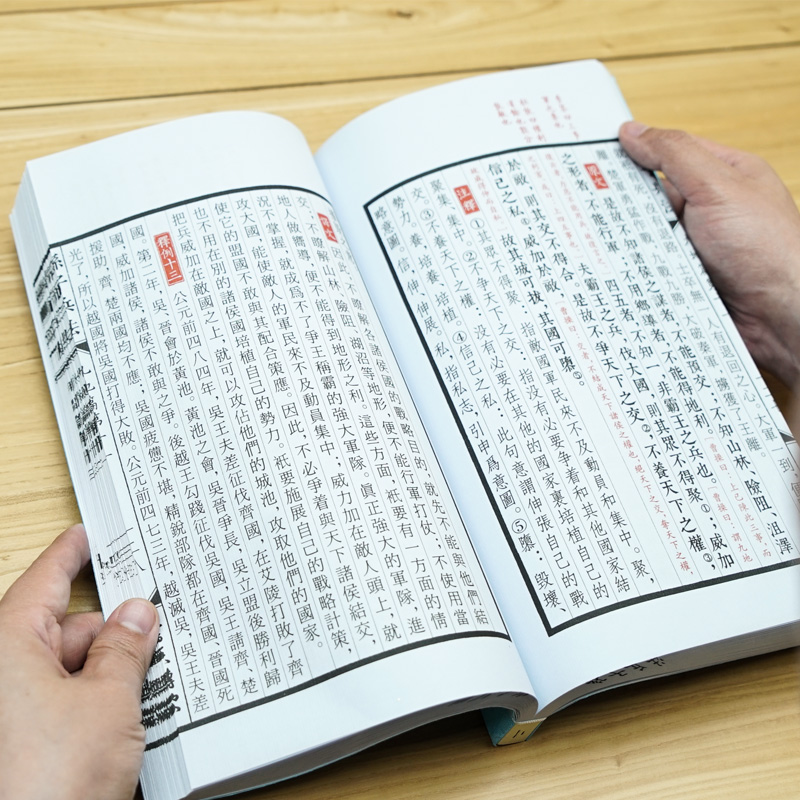 軍奮勇猛作戰，九戰九勝，大破秦軍，擄獲了王離。
原文 是故不知諸侯之謀者，不能預交；不知山林、險阻、沮澤
之形者，不能行軍；不用鄉導者，不能得地利。
四五者，不知一，非霸王之兵也。
夫霸王之兵，伐大國，則其眾不得聚①；威加
於敵，則其交不得合。是故不爭天下之交②，不養天下之權③，
信己之私④，威加於敵，故其城可拔，其國可隳⑤。
注釋 ①其眾不得聚：指敵國軍民來不及動員和集中。聚，
聚集、集中。②不爭天下之交：沒有必要爭着和其他國家結
交。③不養天下之權：沒有必要在其他的國家裏培植自己的
勢力。養，培養、培植。④信己之私：此句意謂伸張自己的戰
略意圖。信，伸，伸展。私，指私志，引申爲意圖。⑤隳：毀壞、
譯文 不了解各諸侯國的戰略目的，就先不能與他們結
交；不瞭解山林、險阻、湖沼等地形，便不能行軍打仗；不使用當
地人做嚮導，便不能得到地形之利。這些方面，衹要有一方面的情
況不掌握，就成爲不了爭王稱霸的強大軍隊。眞正強大的軍隊，進
攻大國，能使敵人的軍民來不及動員集中；威力加在敵人頭上，就
使它的盟國不敢與其配合策應。因此，不必爭着與天下諸侯結交，
也不用在別的諸侯國培植自己的勢力。衹要施展自己的戰略計策，
把兵威加在敵國之上，就可以攻佔他們的城池，攻取他們的國家。
釋例十三 公元前四八四年，吳王夫差征伐齊國，在艾陵打敗了齊
國。第二年，吳、晉會於黃池。黃池之會，吳晉爭長，吳立盟後勝利歸
國，威加諸侯，諸侯不敢與之爭。後越王勾踐征伐吳國，吳王請齊、楚
援助，齊、楚兩國均不應，吳國疲憊不堪，精銳部隊都在齊國、晉國死
光了，所以越國將吳國打得大敗。公元前四七三年，越滅吳，吳王夫差